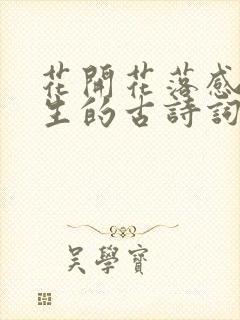 花開花落感
生的古詩詞
吳學寶